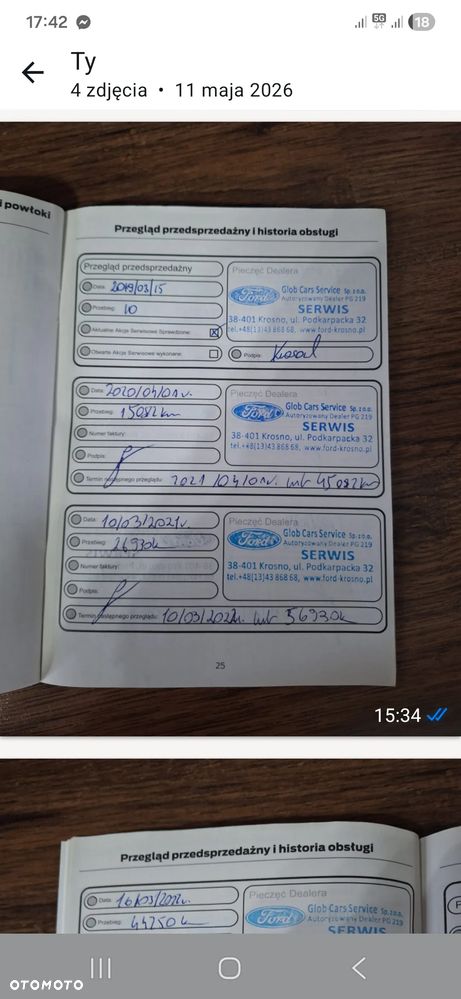 17:42
5G
18
Ty
4 zdjęcia • 11 maja 2026
i powłoki
Przegląd przedsprzedażny i historia obsługi
Przegląd przedsprzedażny
Data: 2019/03/15
Przebieg: 10
Aktualne Akcje Serwisowe Sprawdzone:
Otwarte Akcje Serwisowe wykonane:
Pieczęć Dealera
Ford
Glob Cars Service Sp. z o.o.
Autoryzowany Dealer PG 219
SERWIS
38-401 Krosno, ul. Podkarpacka 32
tel.+48(13)43 868 68, www.ford-krosno.pl
Podpis:
Data: 2020/04/01r.
Przebieg: 15082km
Numer faktury:
Podpis:
Termin następnego przeglądu: 2021/04/01r. lub 45082km
Pieczęć Dealera
Ford
Glob Cars Service Sp. z o.o.
Autoryzowany Dealer PG 219
SERWIS
38-401 Krosno, ul. Podkarpacka 32
tel.+48(13)43 868 68, www.ford-krosno.pl
Data: 10/03/2021r.
Przebieg: 26930k
Numer faktury:
Podpis:
Termin następnego przeglądu: 10/03/2022r. lub 56930k
Pieczęć Dealera
Ford
Glob Cars Service Sp. z o.o.
Autoryzowany Dealer PG 219
SERWIS
38-401 Krosno, ul. Podkarpacka 32
tel.+48(13)43 868 68, www.ford-krosno.pl
25
15:34
Przegląd przedsprzedażny i historia obsługi
Data: 16/03/2022r.
Przebieg: 44250k
Pieczęć Dealera
Ford
Glob Cars Service Sp. z o.o.
Autoryzowany Dealer PG 219
SERWIS
OTOMOTO